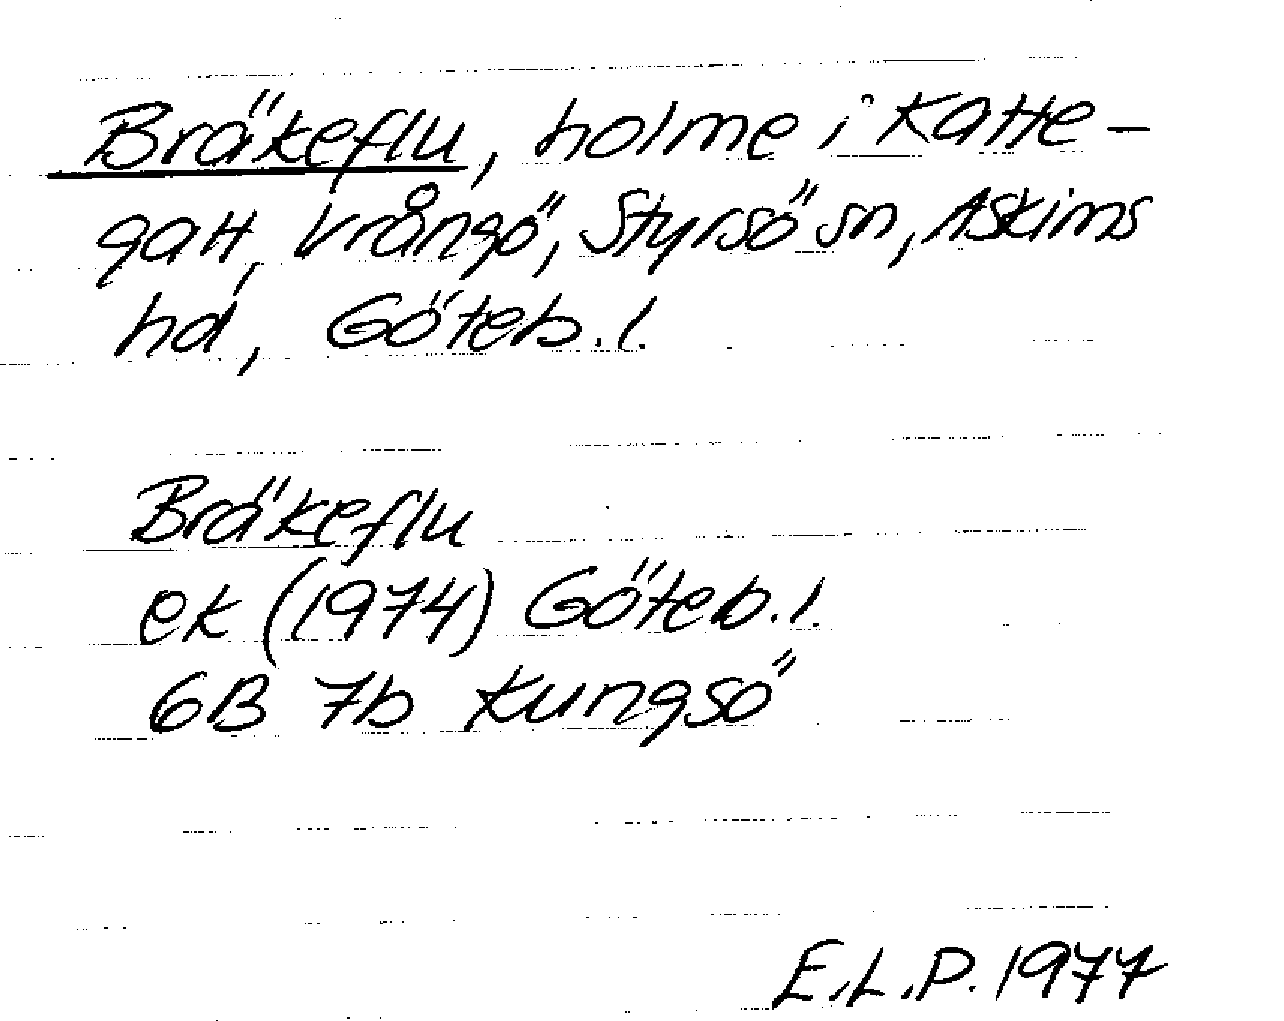 Bräkeflu, holme i Katte-
gatt, Vrångö, Styrsö sn, Askims
hd, Göteb. l.
Bräkeflu
ek (1974) Göteb. l.
6B 7b Kungsö
E.L.P. 1977